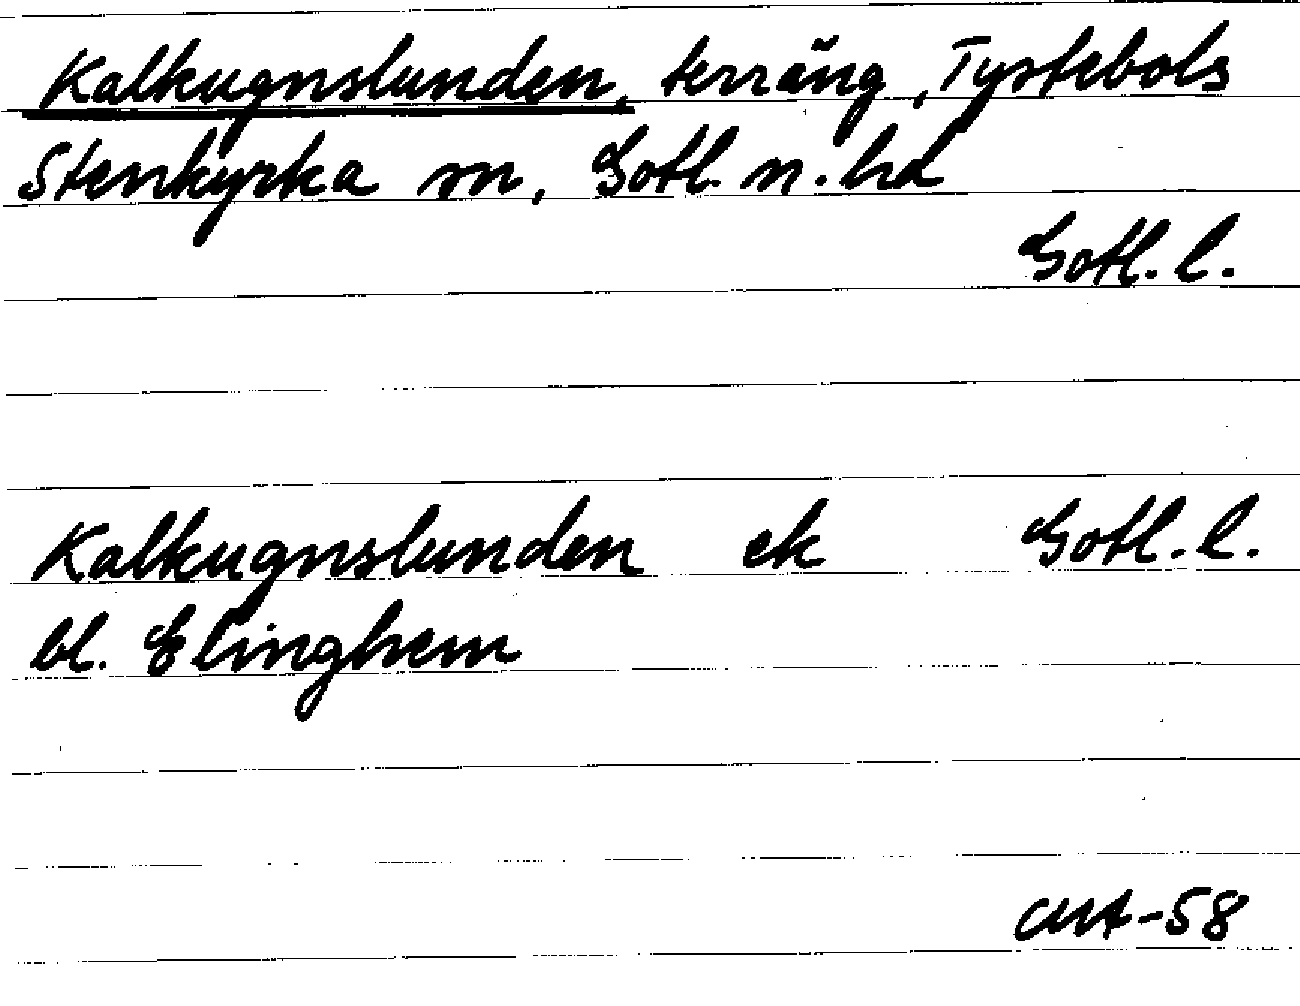 Kalkugnslunden, terräng, Tystebols
Stenkyrka sn, Gotl. n. hd
Gotl. l.
Kalkugnslunden ek Gotl. l.
bl. Elinghem
-58